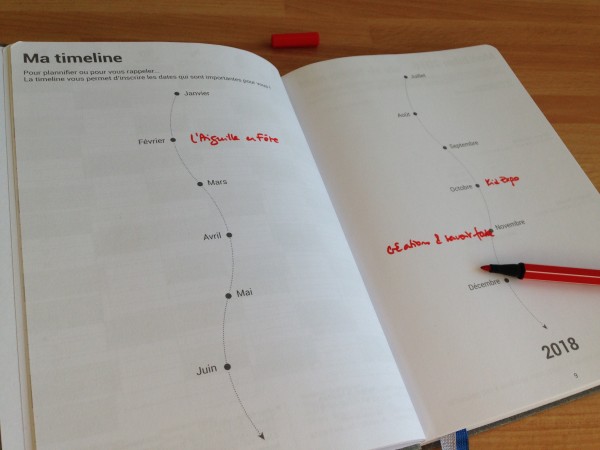 Ma timeline
Pour plannifier ou pour vous rappeler...
La timeline vous permet d'inscrire les dates qui sont importantes pour vous !
Janvier
Février L'Aiguille en Fête
Mars
Avril
Mai
Juin
Juillet
Août
Septembre
Octobre Kid Expo
Novembre
Créations & savoir-faire
Décembre
2018
9